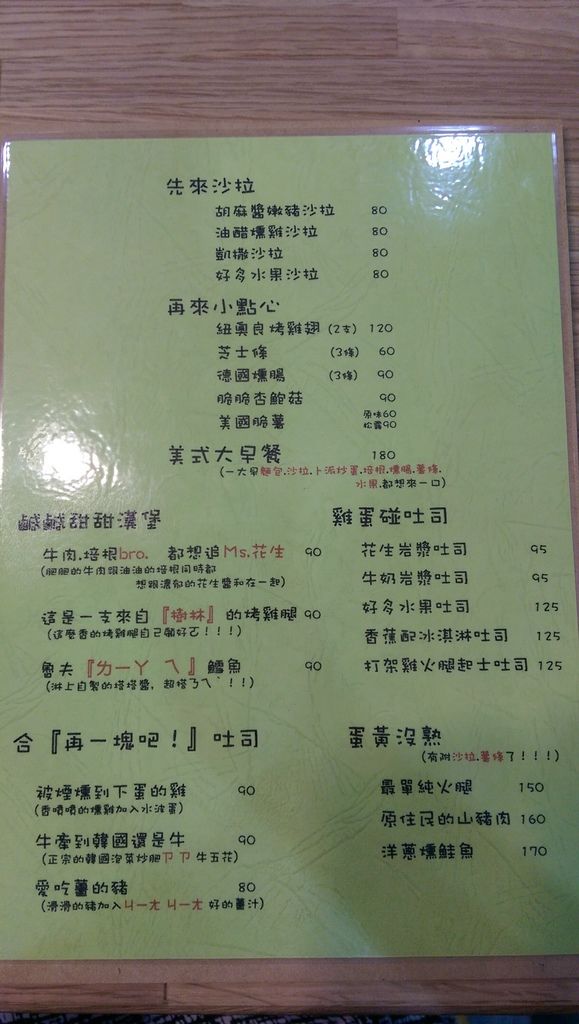 先來沙拉
胡麻醬嫩豬沙拉 80
油醋燻雞沙拉 80
凱撒沙拉 80
好多水果沙拉 80
再來小點心
紐奧良烤雞翅 (2支) 120
芝士條 (3條) 60
德國燻腸 (3條) 90
脆脆杏鮑菇 90
美國脆薯 原味60
松露90
美式大早餐 180
(一大早麵包.沙拉.卜派炒蛋.培根.燻腸.薯條.
水果.都想來一口)
鹹鹹甜甜漢堡
牛肉.培根bro. 都想追Ms.花生 90
(肥肥的牛肉跟油油的培根同時都
想跟濃郁的花生醬和在一起)
這是一支來自『樹林』的烤雞腿 90
(這麼香的烤雞腿自己剛好ㄛ!!!)
魯夫『ㄉㄧㄚ ㄟ』鱈魚 90
(淋上自製的塔塔醬，超搭ㄋㄟˋ!!)
合『再一塊吧！』吐司
被煙燻到下蛋的雞 90
(香噴噴的燻雞加入水波蛋)
牛牽到韓國還是牛 90
(正宗的韓國泡菜炒肥ㄗㄗ牛五花)
愛吃薑的豬 80
(滑滑的豬加入ㄐㄧㄤ ㄐㄧㄤ 好的薑汁)
雞蛋碰吐司
花生岩漿吐司 95
牛奶岩漿吐司 95
好多水果吐司 125
香蕉配冰淇淋吐司 125
打架雞火腿起士吐司 125
蛋黃沒熟
(有附沙拉.薯條了!!!!)
最單純火腿 150
原住民的山豬肉 160
洋蔥燻鮭魚 170